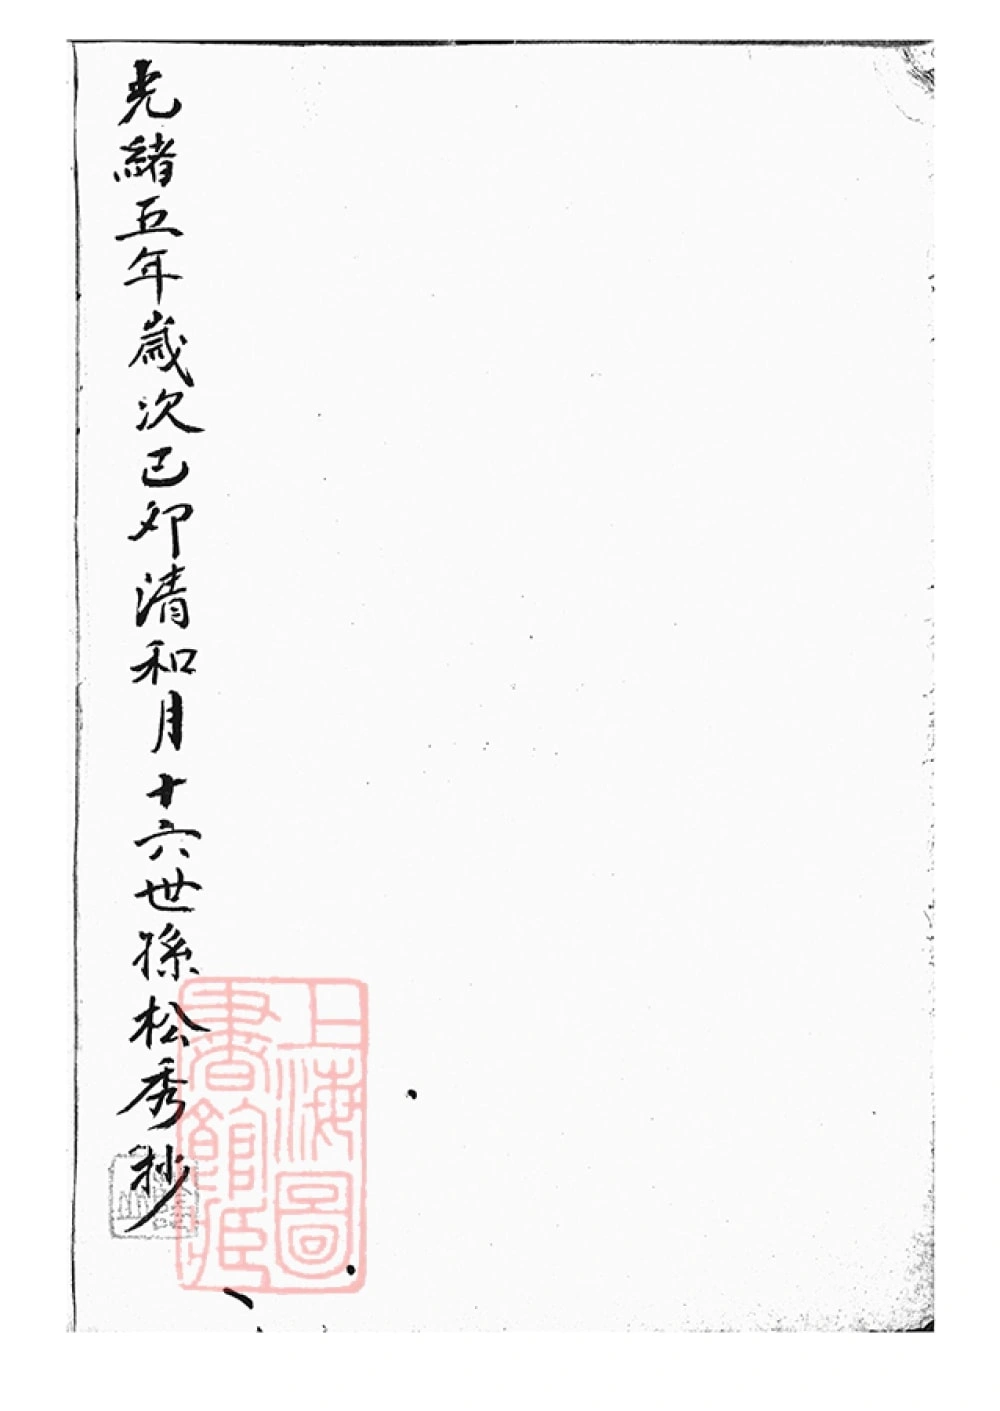 光緒五年歲次己卯清和月十六世孫松秀抄
上海圖
書館藏